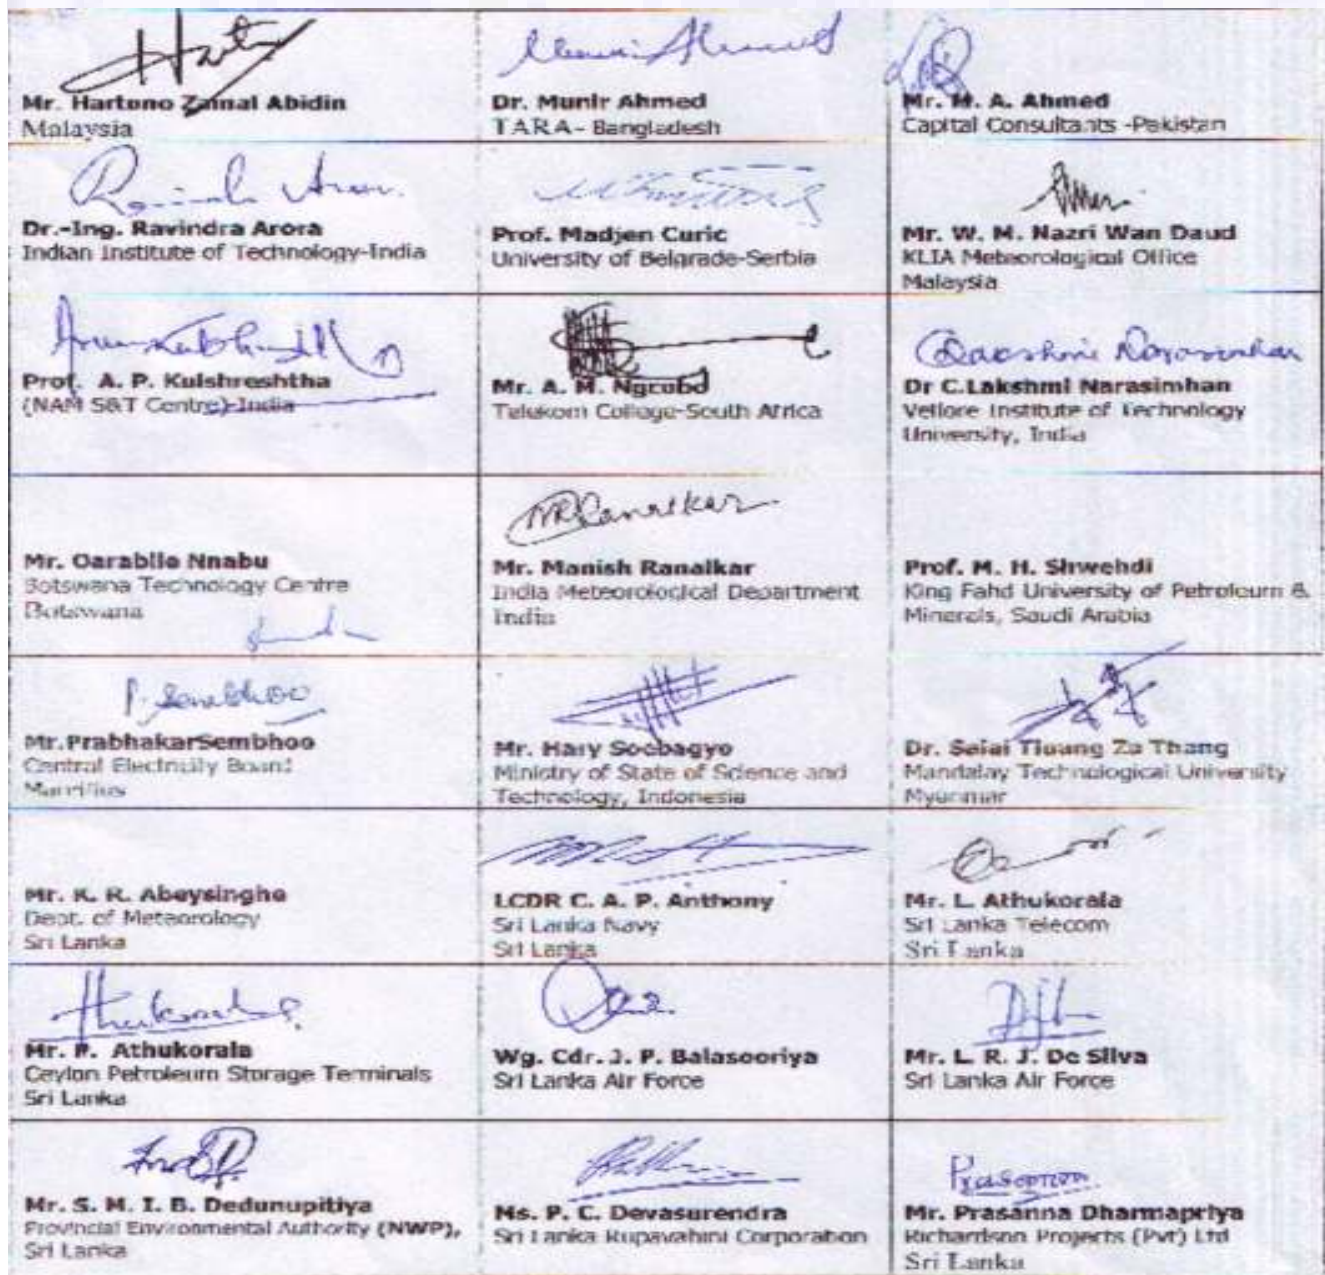 Mr. Hartono Zainal Abidin
Malaysia
Dr. Munir Ahmed
TARA- Bangladesh
Mr. M. A. Ahmed
Capital Consultants -Pakistan
Dr.-Ing. Ravindra Arora
Indian Institute of Technology-India
Prof. Madjen Curic
University of Belgrade-Serbia
Mr. W. M. Nazri Wan Daud
KLIA Meteorological Office
Malaysia
Prof. A. P. Kulshreshtha
(NAM S&T Centre)-India
Mr. A. M. Ngcubo
Telekom College-South Africa
Dr C.Lakshmi Narasimhan
Vellore Institute of Technology
University, India
Mr. Oarabile Nnabu
Botswana Technology Centre
Botswana
MRRanalkar
Mr. Manish Ranalkar
India Meteorological Department
India
Prof. M. H. Shwehdi
King Fahd University of Petroleum &
Minerals, Saudi Arabia
P. Sembhoo
Mr.PrabhakarSembhoo
Central Electricity Board
Mauritius
Mr. Hary Soebagyo
Ministry of State of Science and
Technology, Indonesia
Dr. Salai Tluang Za Thang
Mandalay Technological University
Myanmar
Mr. K. R. Abeysinghe
Dept. of Meteorology
Sri Lanka
LCDR C. A. P. Anthony
Sri Lanka Navy
Sri Lanka
Mr. L. Athukorala
Sri Lanka Telecom
Sri Lanka
Mr. Athukorala
Ceylon Petroleum Storage Terminals
Sri Lanka
Wg. Cdr. J. P. Balasooriya
Sri Lanka Air Force
Mr. L. R. J. De Silva
Sri Lanka Air Force
Mr. S. M. I. B. Dedunupitiya
Provincial Environmental Authority (NWP),
Sri Lanka
Ms. P. C. Devasurendra
Sri Lanka Rupavahini Corporation
Prasanna
Mr. Prasanna Dharmapriya
Richardson Projects (Pvt) Ltd
Sri Lanka